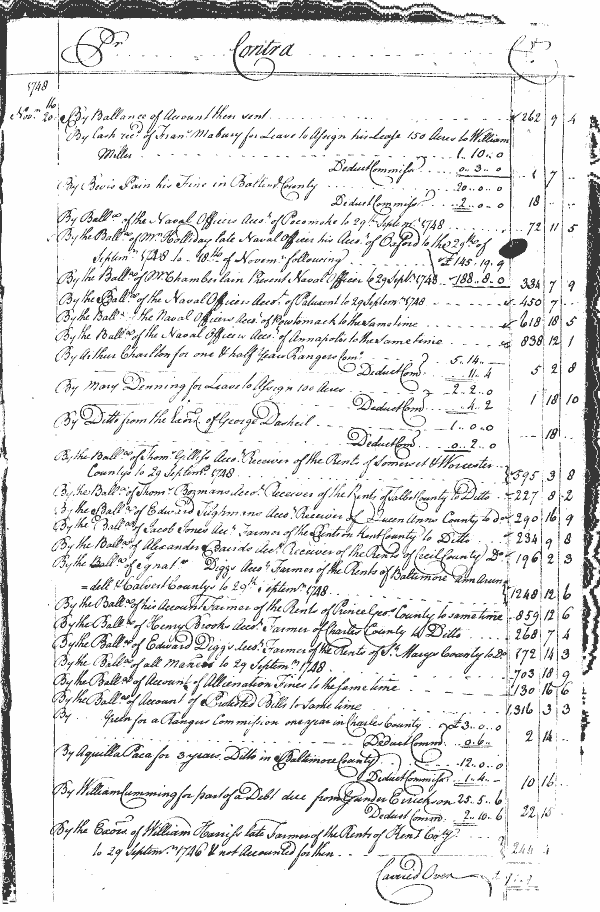 Dr. Contra Cr.
1748
Novr. 20 By Ballance of Account then sent 262 9 4
By Cash recd. of Frans. Mabury for Leave to Assign his Lease 150 Acres to William
Miller 1.. 10.. 0
Deduct Commiss 0.. 3.. 0 1 7
By Bevis Pain his Fine in Baltimre County 20.. 0.. 0
Deduct Commiss 2.. 0.. 0 18
By Ballce. of the Naval Officers Acct. of Pocomoke to 29th. Septemr. 1748 72 11 5
By the Ballce. of Mr. Holliday late Naval Officer his Acct. of Oxford to the 29th. of
Septemr. 1748 to 18th. of Novemr. following £145.. 19.. 9
By the Ballce. of Mr. Chamberlain Present Naval Officer to 29 Septr. 1748 188.. 8.. 0 334 7 9
By the Ballce. of the Naval Officers Acct. of Patuxent to 29 Septemr. 1748 450 7
By the Ballce. the Naval Officers Acct. of Powtomack to the same time 618 18 5
By the Ballce. of the Naval Officers Acct. of Annapolis to the same time 838 12 1
By Arthur Charlton for one & half Year Rangers Comn. 5.. 14..
Deduct Com 11.. 4 5 2 8
By Mary Denning for Leave to Assign 130 Acres 2.. 2.. 0
Deduct Com 4.. 2 1 18 10
By Ditto from the Exors. of George Dasheil 1.. 0.. 0
Deduct Com 0.. 2.. 0 18
By the Ballce. of Thoms. Gilliss Acct. Receiver of the Rents of Somerset & Worcester
Countys to 29 Septemr. 1748 595 3 8
By the Ballce. of Thoms. Bozmans Acct. Receiver of the Rents of Talbot County to Ditto 227 8 2
By the Ballce. of Edward Tilghmans Acct. Receiver of Queen Anns County to Do 290 16 9
By the Ballce. of Jacob Jones Acct. Farmer of the Rents on Kent County to Ditto 234 9 8
By the Ballce. of Alexander Bairds Acct. Receiver of the Rents of Cecil County Do 196 2 3
By the Ballce. of Ignats. Diggs Acct. Farmer of the Rents of Baltimore Ann Arun
=dell & Calvert Countys to 29th. Septemr. 1748 1248 12 6
By the Ballce. of his Account Farmer of the Rents of Prince Geo: County to same time 859 12 6
By the Ballce. of Henry Brooks Acct. Farmer of Charles County to Ditto 268 7 4
By the Ballce. of Edward Diggs Acct. Farmer of the Rents of St. Marys County to Do 172 14 3
By the Ballce. of all Manors to 29 Septemr. 1748 703 18 9
By the Ballce. of Account of Allienation Fines to the same time 130 16 6
By the Ballce. of Account of Protested Bills to same time 1316 3 3
By Green for a Rangers Commission one year in Charles County £3.. 0.. 0
Deduct Comn. 0.. 6.. 2 14
By Aquilla Paca for 3 years Ditto in Baltimore County 12.. 0.. 0
Deduct Commiss 1.. 4.. 10 16
By William Cumming for part of a Debt due from Gunder Erickson 25.. 5.. 6
Deduct Comn. 2.. 10.. 6 22 15
By the Exors. of William Harriss late Farmer of the Rents of Kent Coty.
to 29 Septemr. 1746 & not Accounted for then 244 4
Carried Over